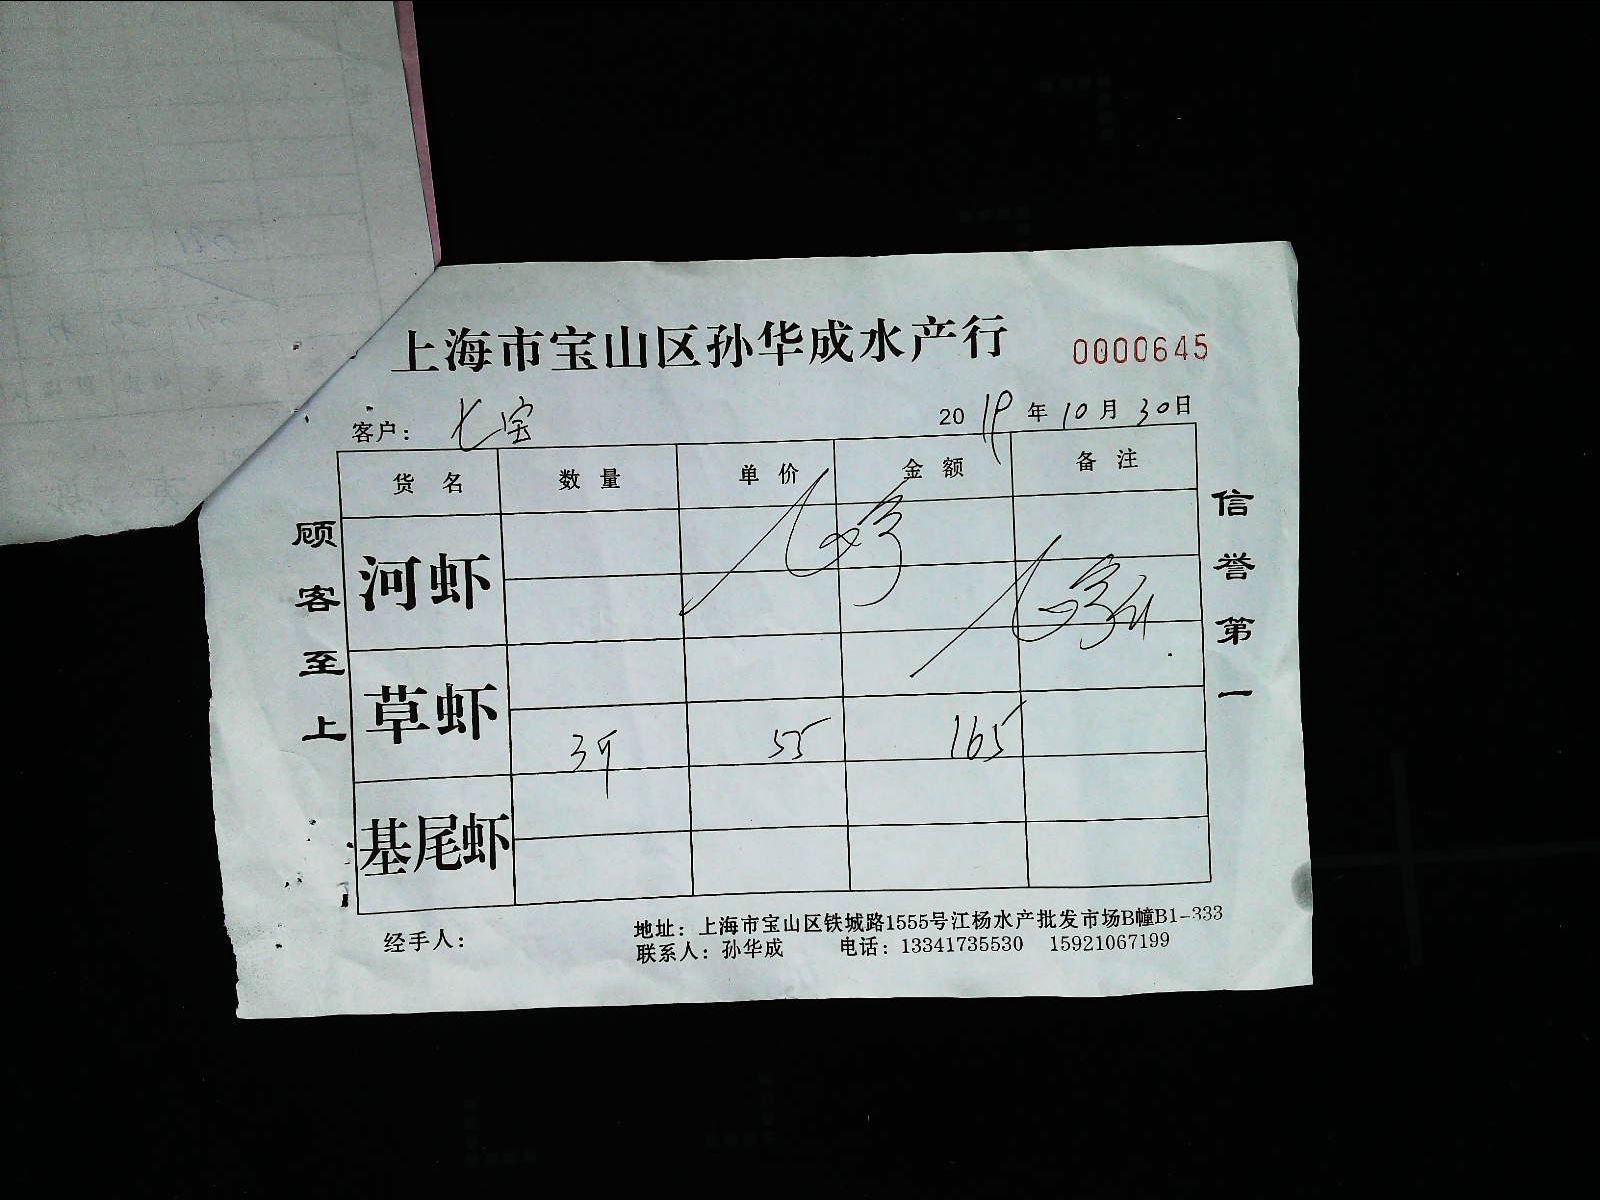 上海市宝山区孙华成水产行 0000645
客户： 七宝 2019年10月30日
货名 数量 单价 金额 备注
河虾
草虾
3斤 55 165
基尾虾
顾客至上
信誉第一
经手人：
地址：上海市宝山区铁城路1555号江杨水产批发市场B幢B1-333
联系人：孙华成 电话：13341735530 15921067199